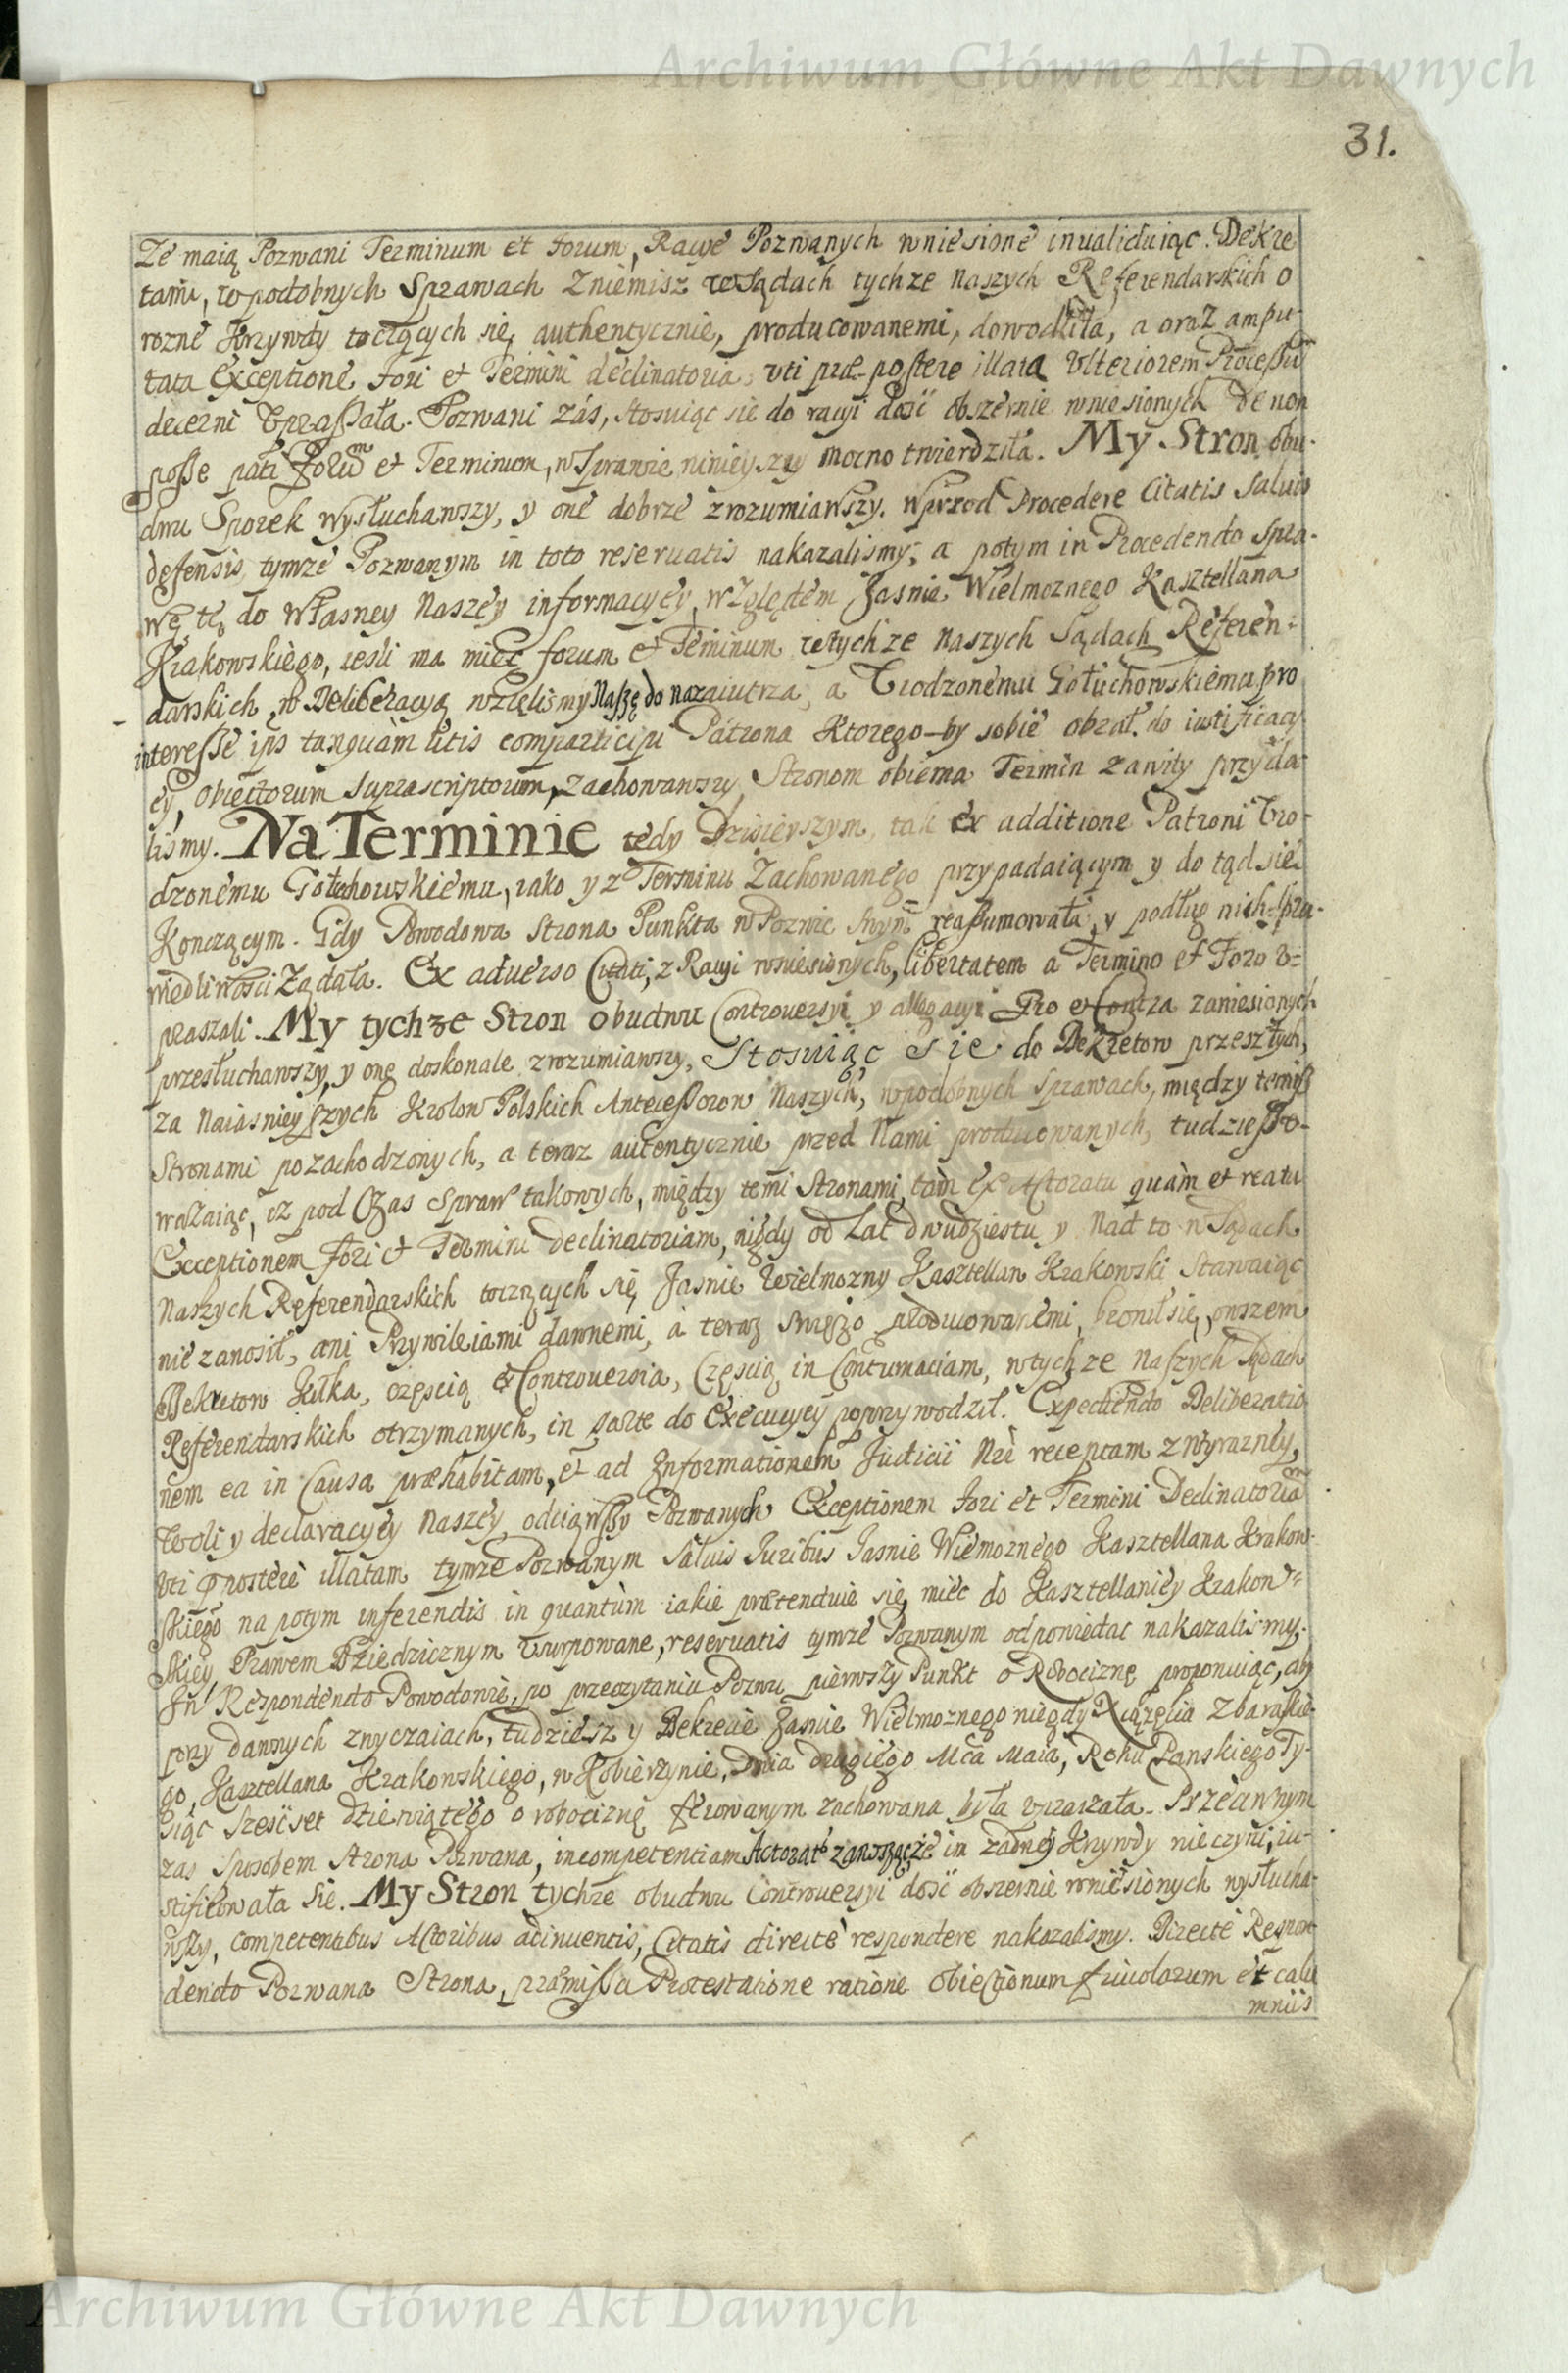 Archiwum Główne Akt Dawnych
31.
Ze maią Pozwani Terminum et Forum, Racye Pozwanych wniesione inualiduiąc. Dekre
tami, w podobnych Sprawach Zniemisz w Sądach tychze naszych Referendarskich o
rozne Krzywdy toczących się, authentycznie, producowanemi, dowodziła, a oraz ampu-
tata Exceptione Fori et Termini declinatoria, vti præ-postere illata Vlteriorem Processũ
decerni Vpraszała. Pozwani zás, stosuiąc sie do racyi dosć obszernie wniesionych De non
posse pati Forũm et Terminum, w Sprawie ninieyszey mocno twierdziła. My Stron obu-
dwu Sporek wysłuchawszy, y one dobrze zrozumiawszy. Wprzod Procedere Citatis Saluis
defensis, tymze Pozwanym in toto reseruatis nakazalismy; a potym in Procedendo Spra-
wę tę do Własney Naszey informacyey, względem Jasnie Wielmoznego Kasztellana
Krakowskiego, iesli ma miec forum et Teminum w tychze naszych Sądach Referen-
darskich, w Deliberacyą wzielismy Naszę do nazaiutrza, a Vrodzonemu Gołuchowskiemu pro
interesse ips tanquàm litis comparticipi Patrona Ktorego-by sobie obrał, do iustificacy
ey, Obiectorum suprascriptorum, zachowawszy Stronom obiema Termin zawity przyda-
lismy. Na Terminie tedy Dzisieyszym, tak ex additione Patroni Vro-
dzonemu Gołuchowskiemu, iako y z Terminu Zachowanego przypadaiącym y do tąd się
Konczącym. Gdy Powodowa Strona Punkta w Pozwie swym reassumowała, y podług nich spra-
wiedliwosci Ządała. Ex aduerso Citati, z Racyi wniesionych, libertatem a Termino et Foro v-
praszali. My tychze Stron obudwu Controuersyi y allegacyi Pro et Contra zaniesionych
przesłuchawszy, y one doskonale zrozumiawszy, Stosuiąc Sie do Dekretow przeszłych,
za Naiasnieyszych Krolow Polskich Antecessorow Naszych, w podobnych Sprawach, między temisz
Stronami pozachodzonych, a teraz autentycznie przed Nami producowanych, tudziesz v-
wazaiąc, iz pod Czas Spraw takowych, między temi Stronami, tàm ex Actoratu quàm et reatu
Exceptionem Fori et Termini declinatoriam, nigdy od Lat dwudziestu y nad to w Sądach
Naszych Referendarskich toczących się Jasnie Wielmozny Kasztellan Krakowski Stawaiąc
nie zanosił, ani Przywileiami dawnemi, à teraz swiezo producowanemi, bronił się, owszem
Dekretow Kilka, częscią ex Controuersia, Częscią in Contumaciam, w tychze Naszych Sądach
Referendarskich otrzymanych, in parte do Execucyey poprzywodził. Expediendo Deliberatio
nem ea in Causa præhabitam, et ad Informationem Judicii Nri receptam z wyrazney
Woli y declaracyey Naszey, odciąwszy Pozwanych Exceptionem Fori et Termini Declinatoriam
Vti præpostere illatam tymze Pozwanym Saluis Juribus Jasnie Wiemoznego Kasztellana Krakow-
skiego na potym inferendis in quantùm iakie prætenduie się miec do Kasztellaniey Krakow-
skiey, Prawem Dziedzicznym Vsurpowane, reseruatis tymze Pozwanym odpowiedac nakazalismy.
In Respondendo Powodowie, po przeczytaniu Pozwu, pierwszy Punkt o Robociznę proponuiąc, aby
przy dawnych zwyczaiach, tudziesz y Dekrecie Jasnie Wielmoznego niegdy Xiązęcia Zbaraskie-
go, Kasztellana Krakowskiego, w Kobierzynie, Dnia drugiego Mca Maia, Roku Panskiego Ty-
siąc Szescset dziewiątego o robociznę ferowanym zachowana była vpraszała. Przeciwnym
zas Sposobem Strona Pozwana, incompetentiam Actorat9 zanosząc, że im zadney Krzywdy nie czyni, iu-
stificowała się. My Stron tychze obudwu Controuersyi dosć obszernie wniesionych wysłucha-
wszy, Competentibus Actoribus adinuentis, Citatis directè respondere nakazalismy. Directe Respon
dendo Pozwana Strona, præmissa Protestatione ratione obiectionum friuolarum et calu
mniis
Archiwum Główne Akt Dawnych